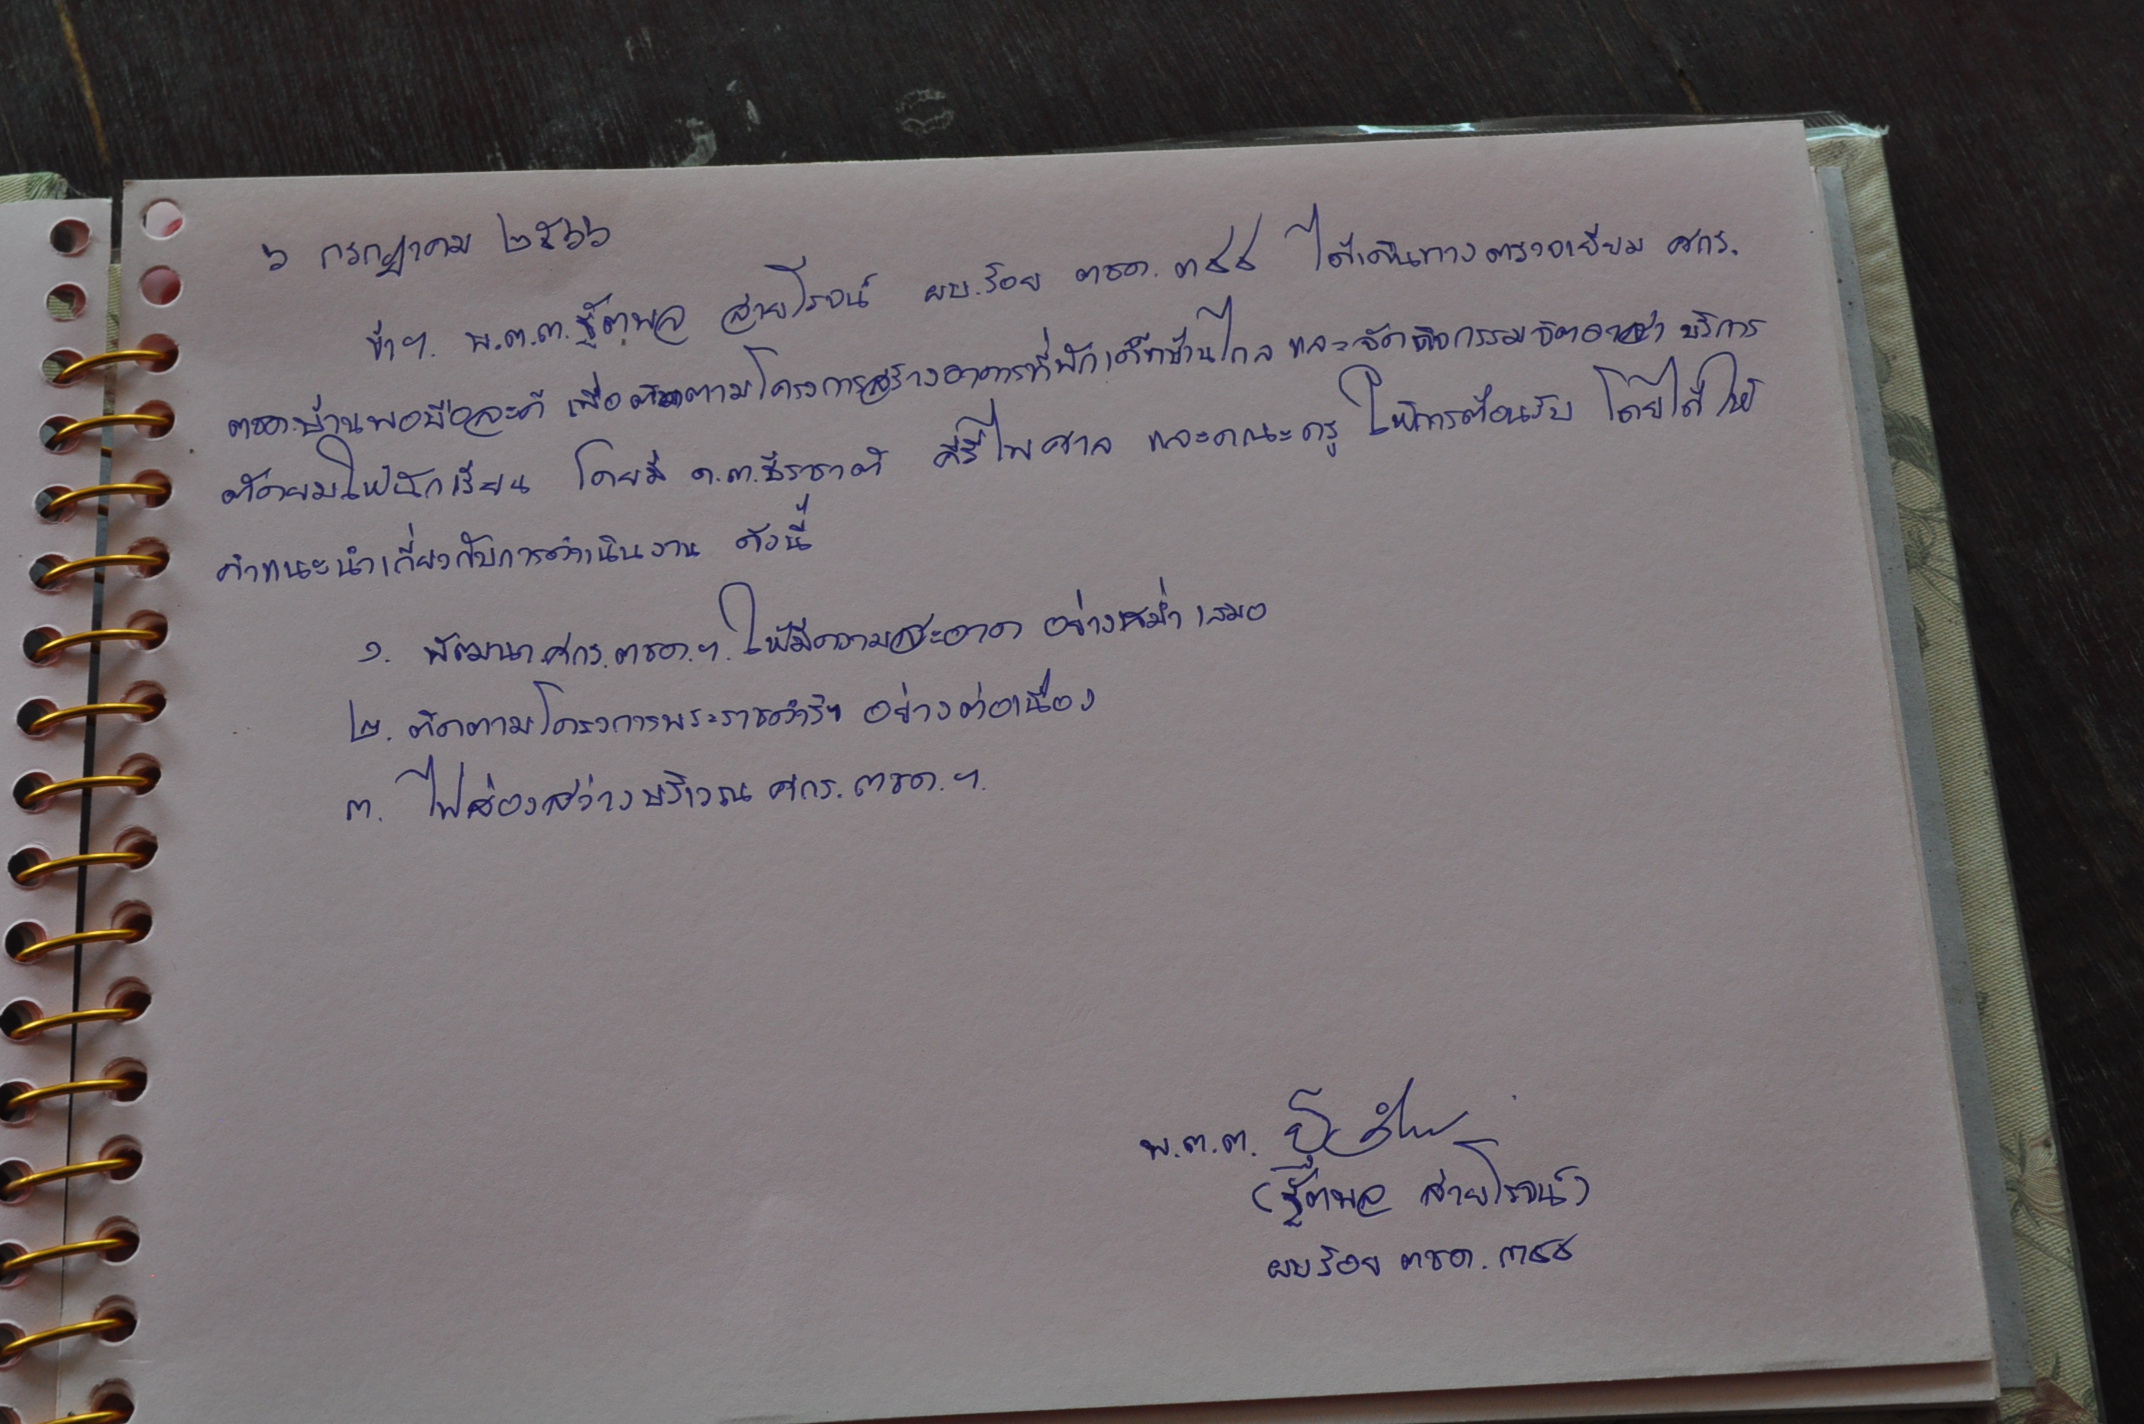 ๖ กรกฎาคม ๒๕๖๖
ข้าฯ. พ.ต.ต.ฐิตพล สายโรจน์ ผบ.ร้อย ตชด.๓๔๔ ได้เดินทางตรวจเยี่ยม ศกร.
ตชด.บ้านพอบือละคี เพื่อติดตามโครงการสร้างอาคารที่พักเด็กบ้านไกล และจัดกิจกรรมจิตอาสา บริการ
ตัดผมให้นักเรียน โดยมี ด.ต.ธีรชาติ คีรีไพศาล และคณะครู ให้การต้อนรับ โดยได้ให้
คำแนะนำเกี่ยวกับการดำเนินงาน ดังนี้
๑. พัฒนา ศกร.ตชด.ฯ. ให้มีความสะอาด อย่างสม่ำเสมอ
๒. ติดตามโครงการพระราชดำริฯ อย่างต่อเนื่อง
๓. ไฟส่องสว่างบริเวณ ศกร.ตชด.ฯ.
พ.ต.ต.
(ฐิตพล สายโรจน์)
ผบ.ร้อย ตชด.๓๔๔